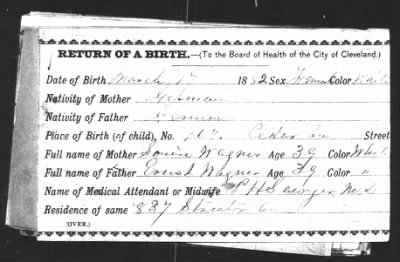 RETURN OF A BIRTH.—(To the Board of Health of the City of Cleveland.)
Date of Birth March 17 1882 Sex, Color
Nativity of Mother German
Nativity of Father German
Place of Birth (of child), No. 167 Cedar av Street
Full name of Mother Louise Wagner Age 39 Color White
Full name of Father Ernst Wagner Age 39 Color "
Name of Medical Attendant or Midwife P H
Residence of same 837
(OVER.)